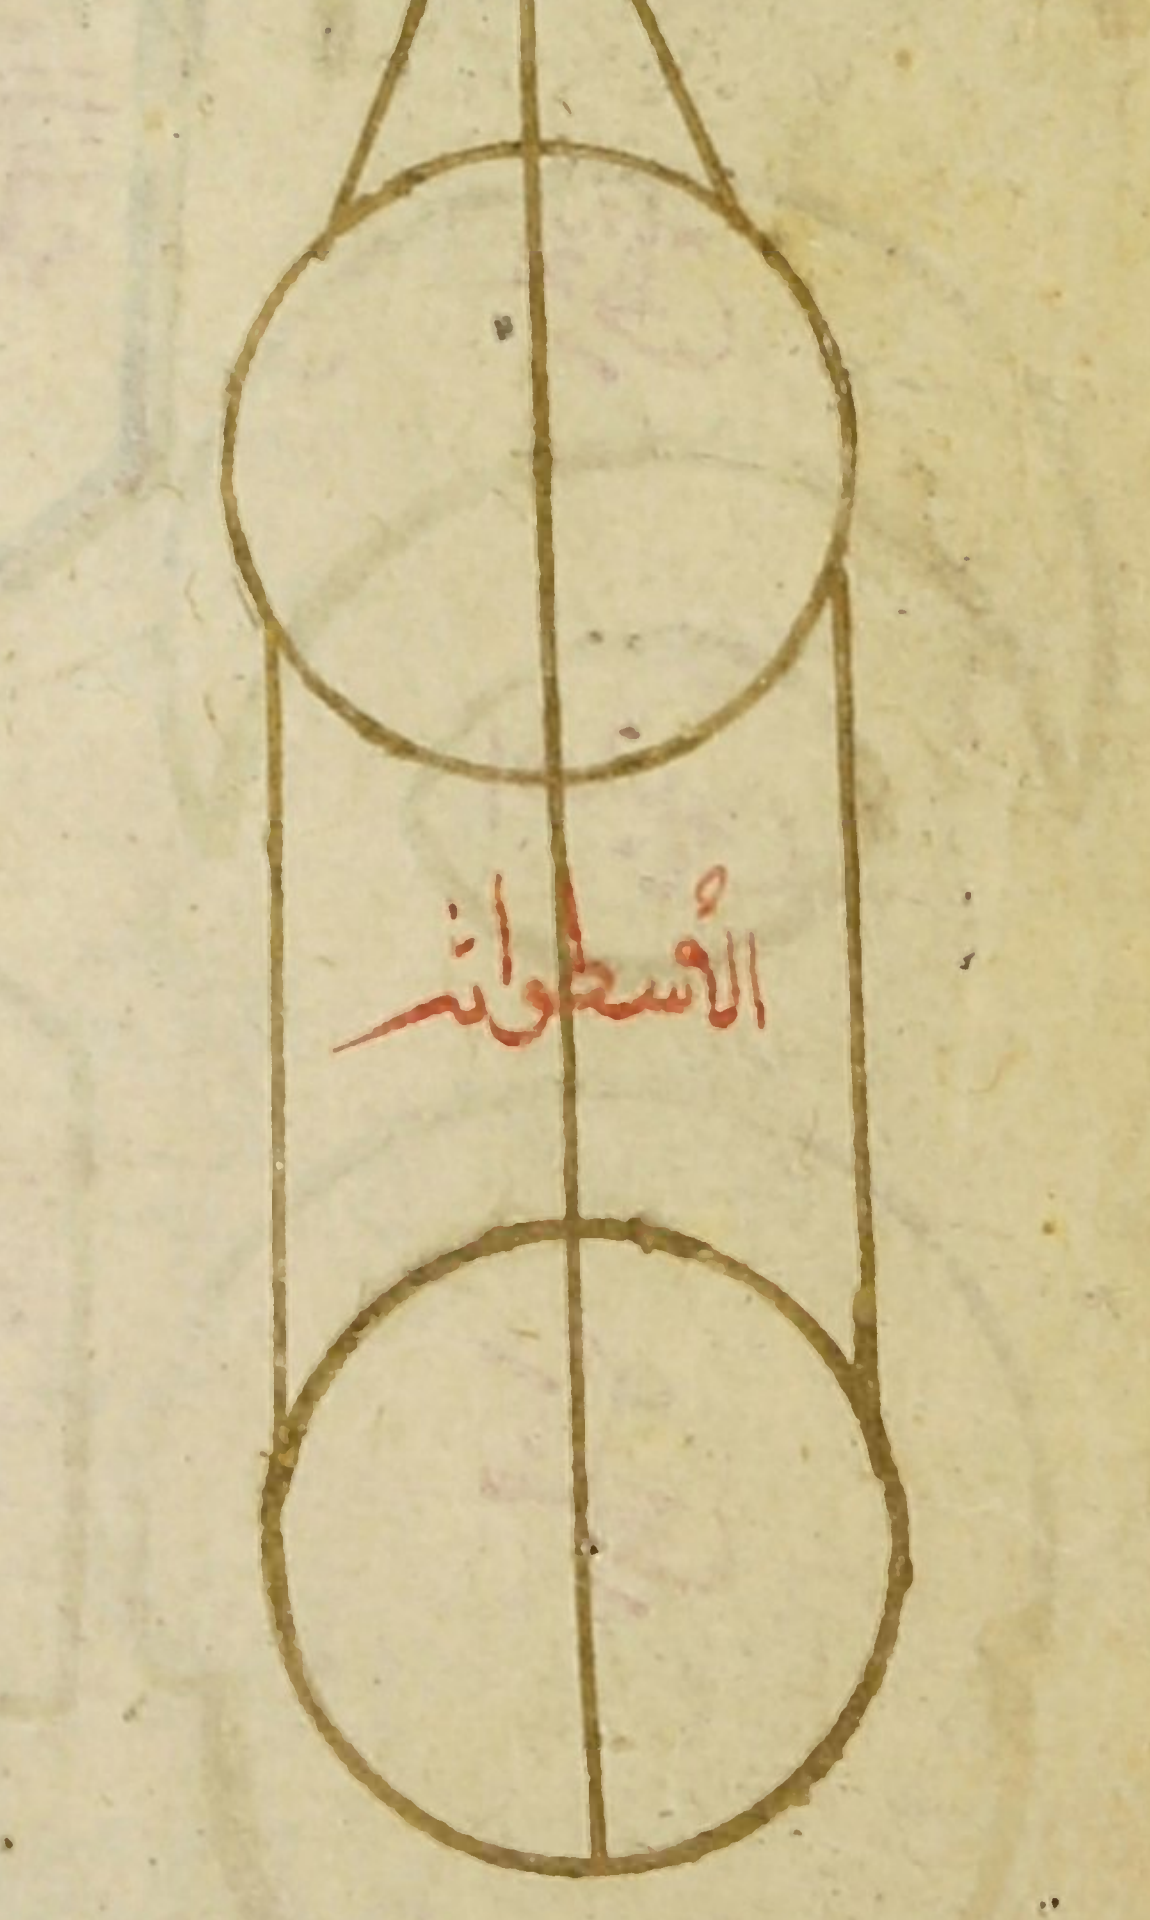 الأسطوانه